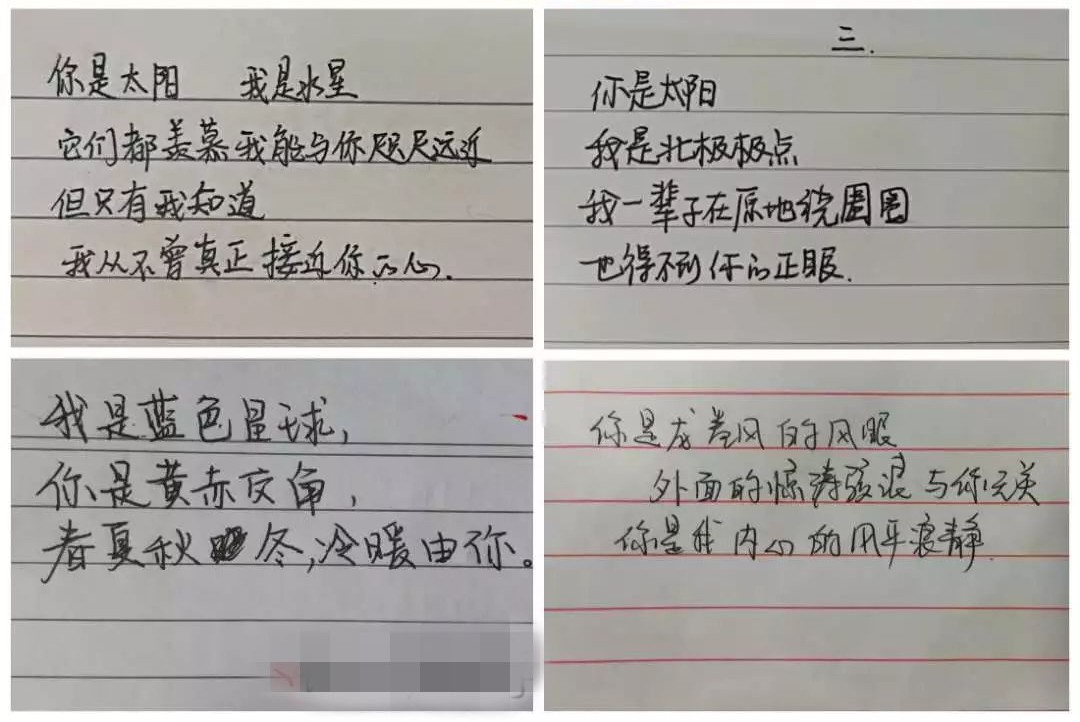 你是太阳 我是水星
它们都羡慕我能与你咫尺远近
但只有我知道
我从不曾真正接近你的心.
三.
你是太阳
我是北极极点
我一辈子在原地绕圈圈
也得不到你的正眼.
我是蓝色星球,
你是黄赤交角,
春夏秋冬,冷暖由你。
你是龙卷风的风眼
外面的惊涛骇浪与你无关
你是我内心的风平浪静.